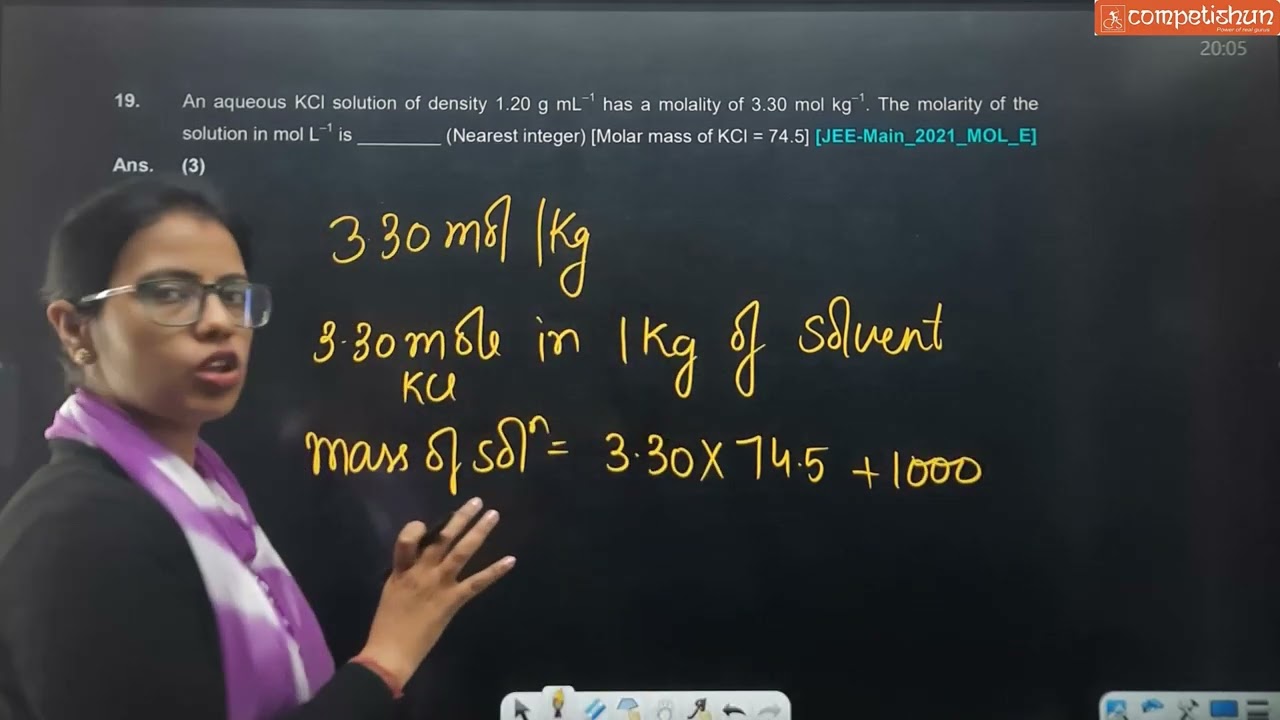 competishun
Power of real gurus
20:05
19. An aqueous KCl solution of density 1.20 g mL⁻¹ has a molality of 3.30 mol kg⁻¹. The molarity of the
solution in mol L⁻¹ is ________ (Nearest integer) [Molar mass of KCl = 74.5] [JEE-Main_2021_MOL_E]
Ans. (3)
3.30 mol /Kg
3.30 mole in 1 Kg of solvent
KCl
mass of solⁿ = 3.30 X 74.5 + 1000